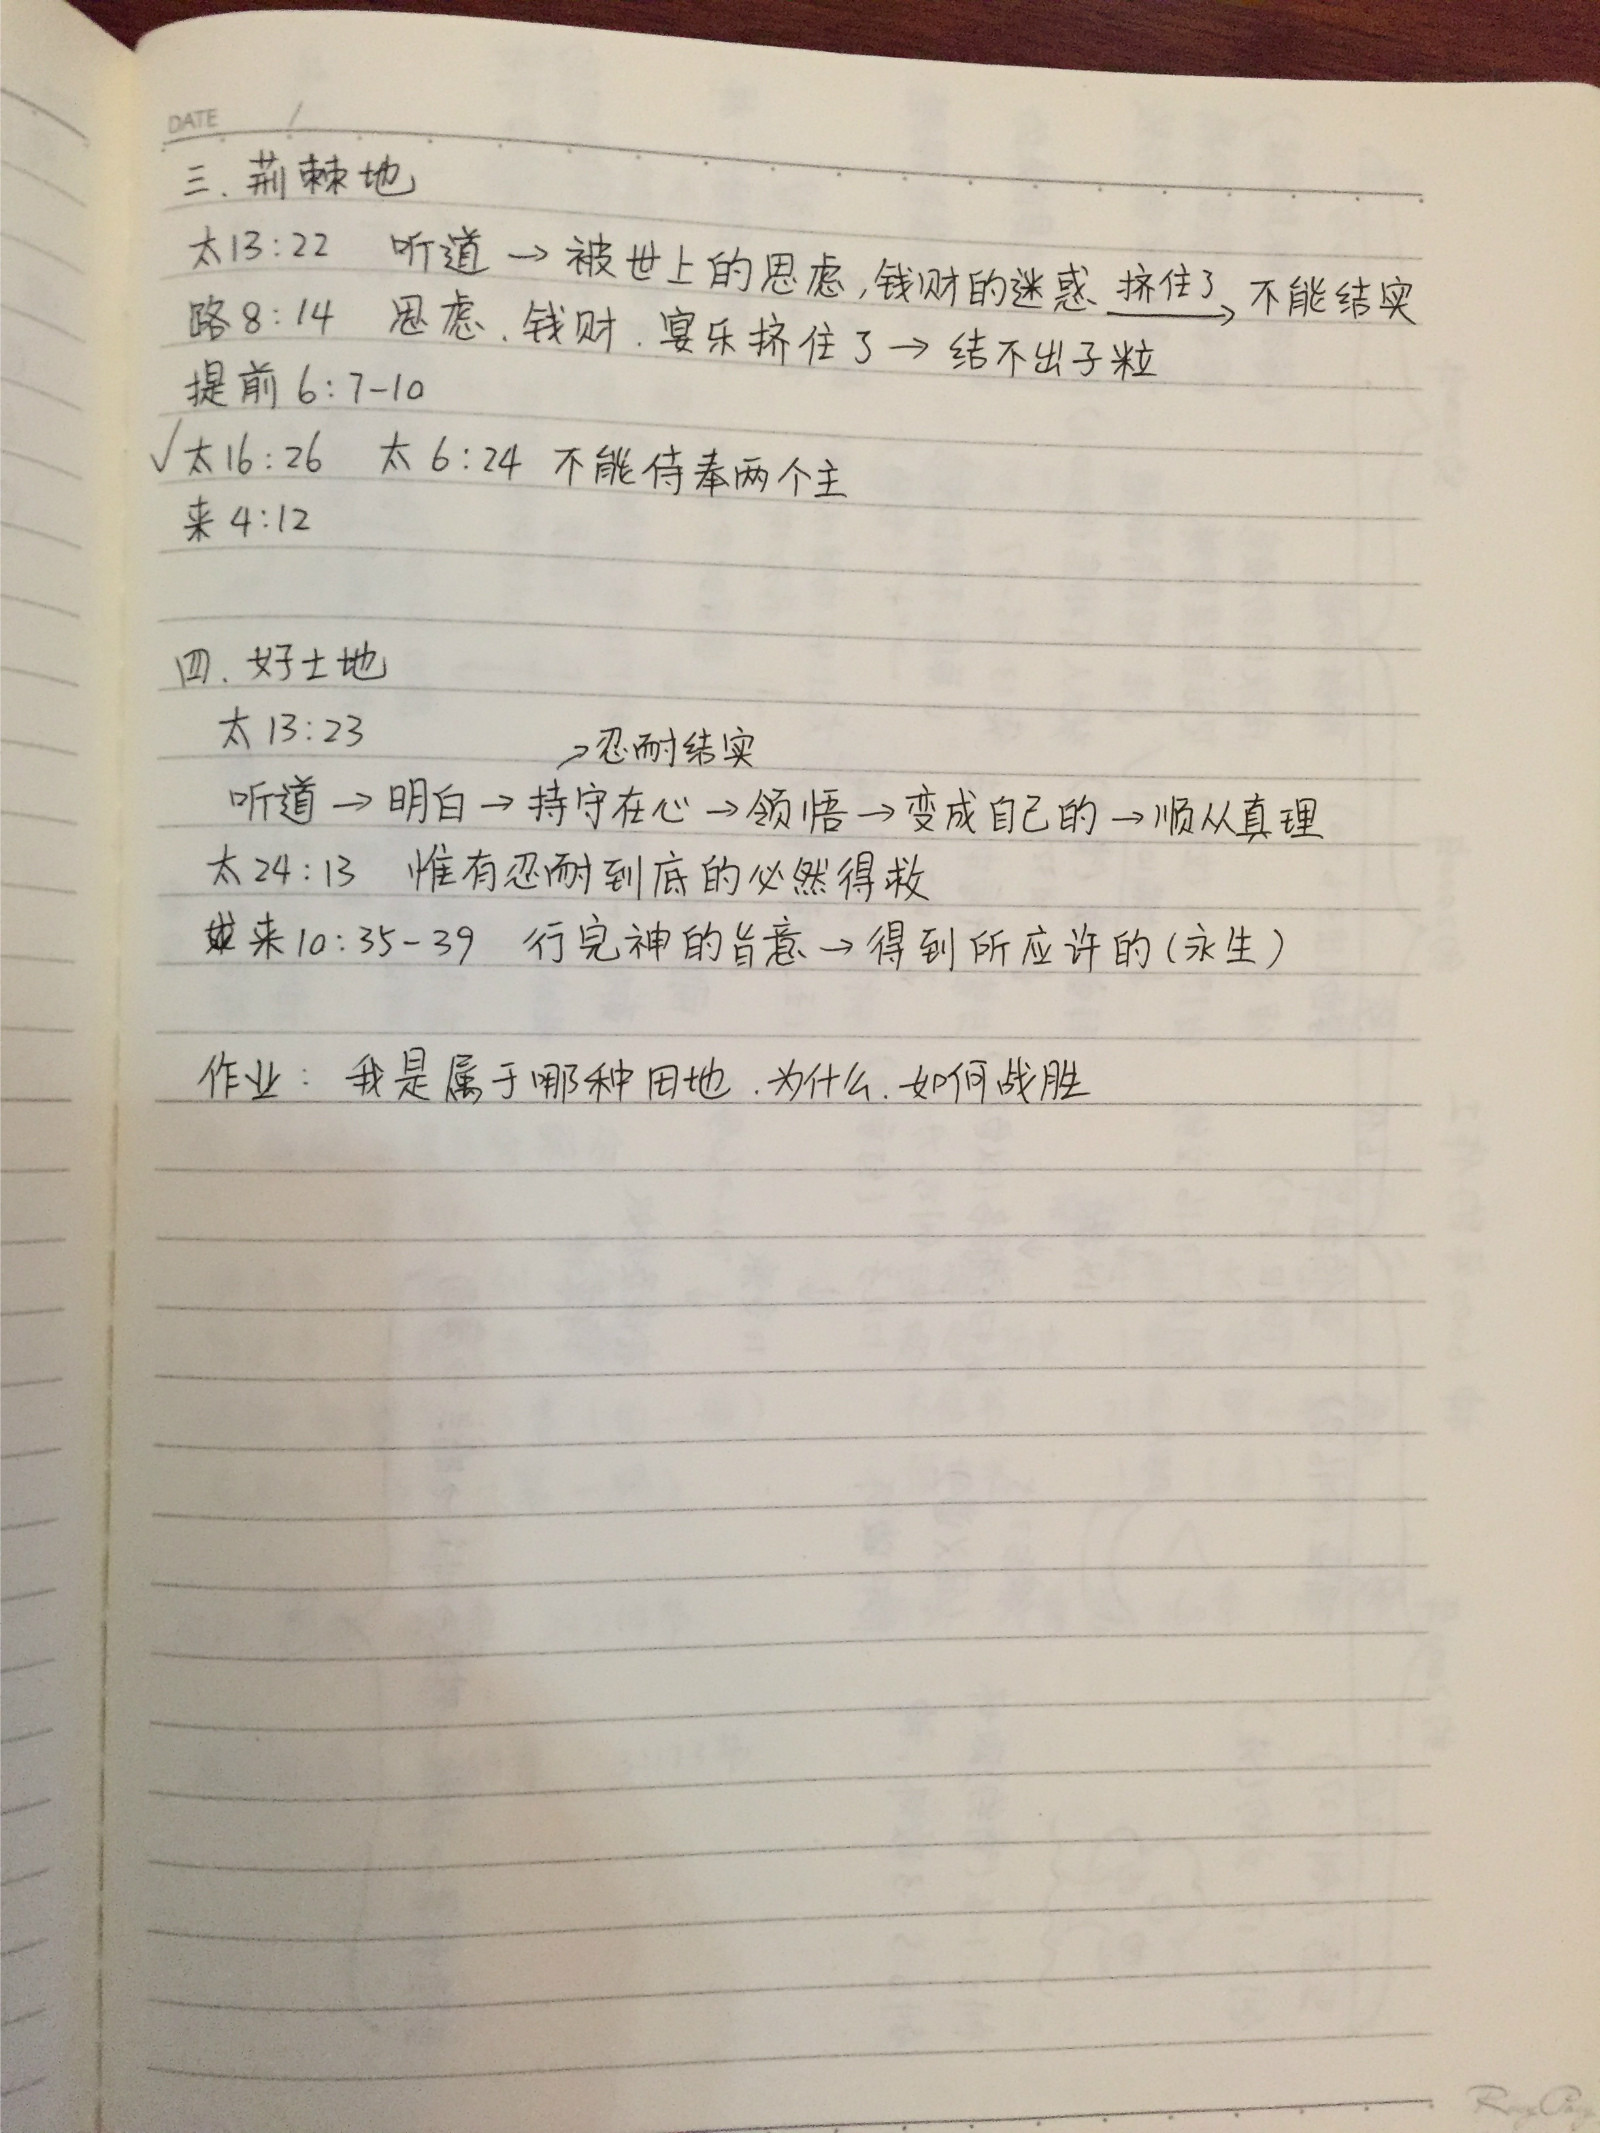 DATE /
三. 荆棘地
太13:22 听道→被世上的思虑,钱财的迷惑 挤住了→ 不能结实
路8:14 思虑.钱财.宴乐挤住了→结不出子粒
提前6:7-10
√太16:26 太6:24 不能侍奉两个主
来4:12
四. 好土地
太13:23
↗忍耐结实
听道→明白→持守在心→领悟→变成自己的→顺从真理
太24:13 惟有忍耐到底的必然得救
来10:35-39 行完神的旨意→得到所应许的(永生)
作业: 我是属于哪种田地.为什么.如何战胜